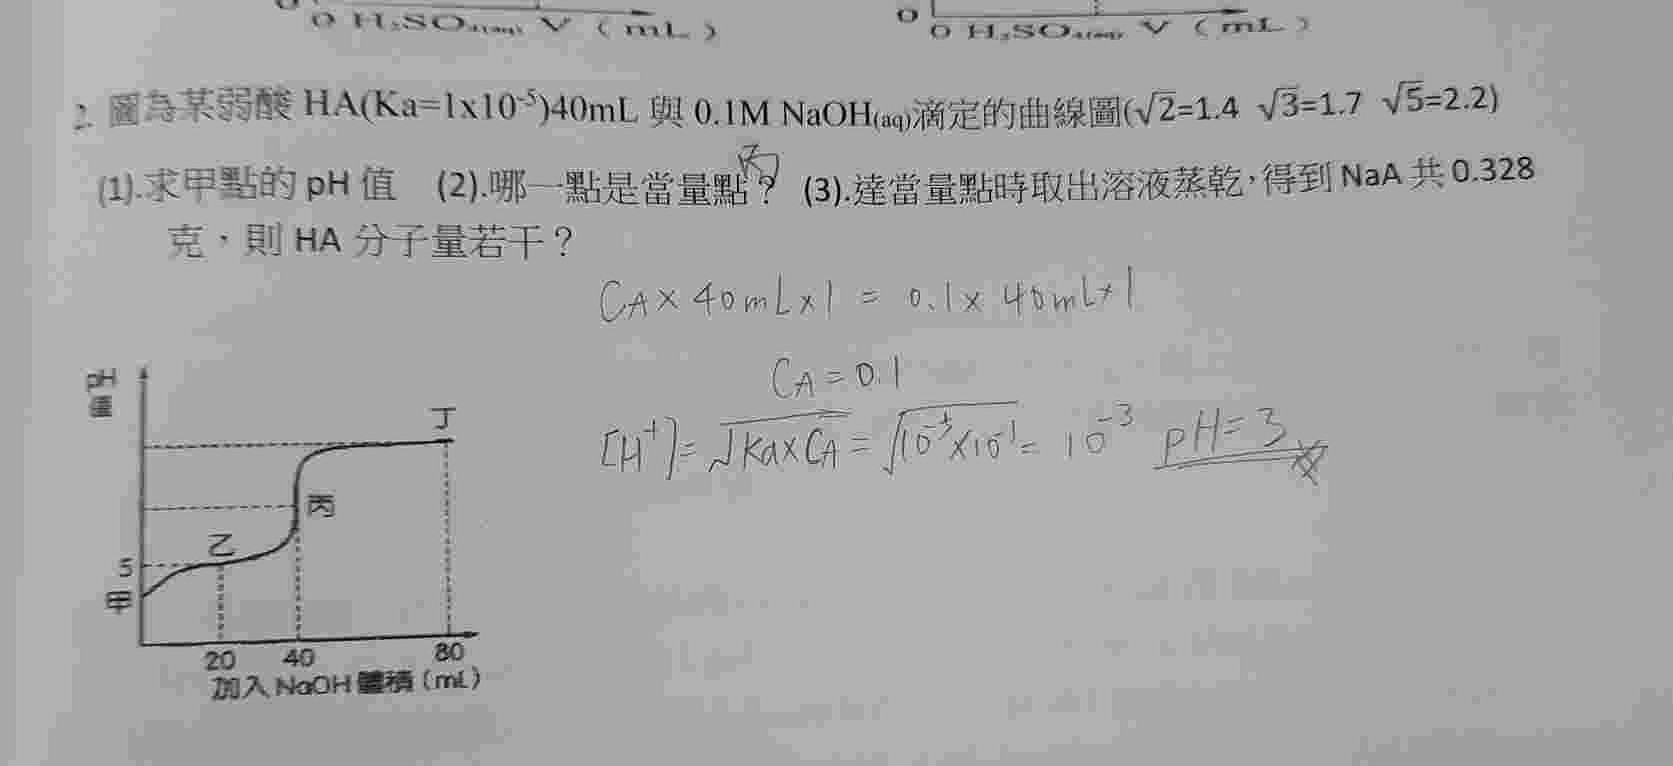 0 H₂SO₄(aq) V （mL） 0 0 H₂SO₄(aq) V （mL）
2. 圖為某弱酸 HA(Ka=1x10⁻⁵)40mL 與 0.1M NaOH(aq)滴定的曲線圖(√2=1.4 √3=1.7 √5=2.2)
丙
(1).求甲點的 pH 值 (2).哪一點是當量點？ (3).達當量點時取出溶液蒸乾，得到 NaA 共 0.328
克，則 HA 分子量若干？
CA × 40mL×1 = 0.1× 40mL×1
CA = 0.1
[H⁺]= √Ka×CA = √10⁻⁵×10⁻¹ = 10⁻³ pH=3
pH值
丁
丙
乙
5
甲
20 40 80
加入 NaOH 體積（mL）